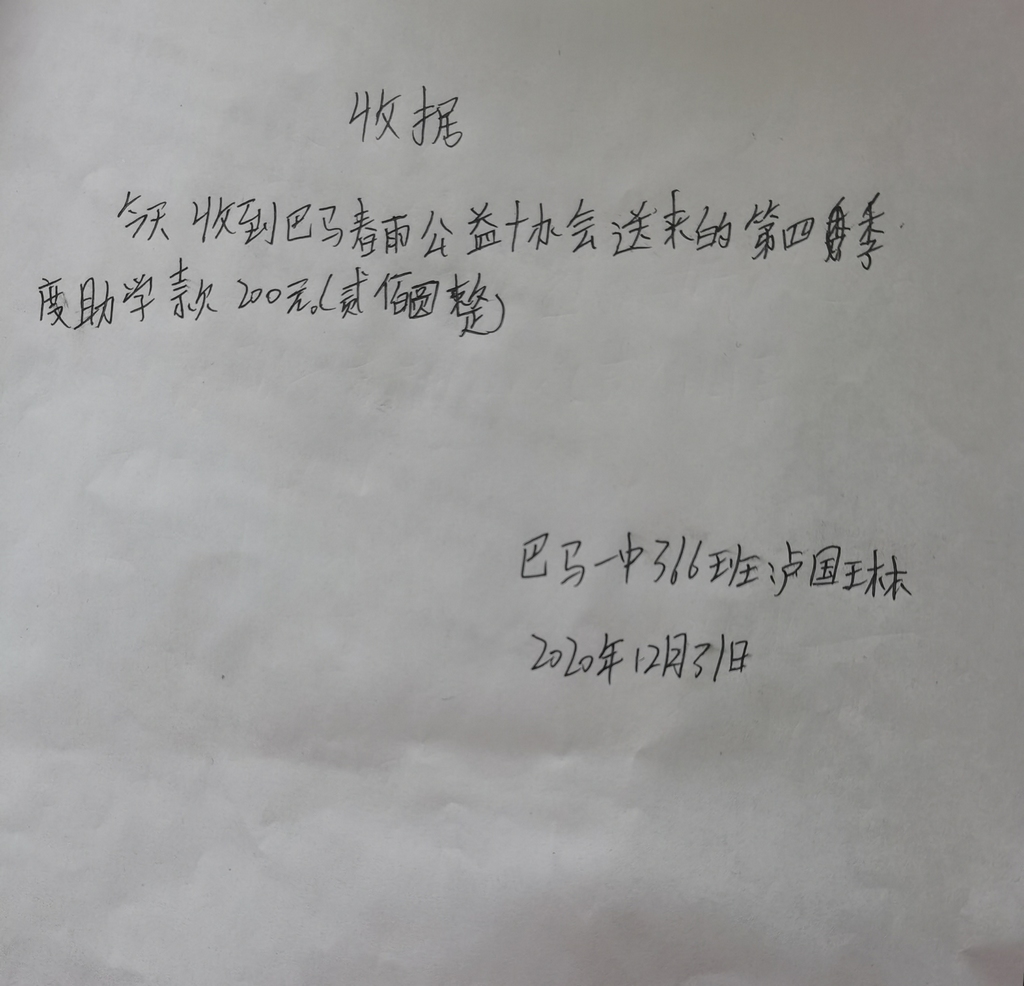 收据
今天收到巴马春雨公益协会送来的第四季
度助学款200元。(贰佰圆整)
巴马一中366班泸国琳
2020年12月31日